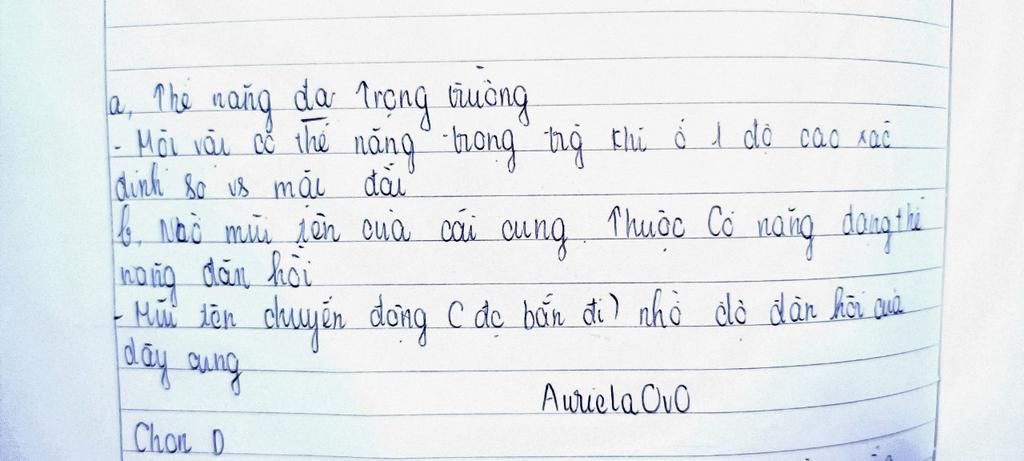 a, Thế năng đa Trọng trường
- Mỗi vật có thế năng trọng trg khi ở 1 độ cao xác
định so vs mặt đất
b, Nhờ mũi tên của cái cung. Thuộc Cơ năng dạng thế
năng đàn hồi
- Mũi tên chuyển động ( đc bắn đi ) nhờ độ đàn hồi của
dây cung
AurielaOvO
Chọn D